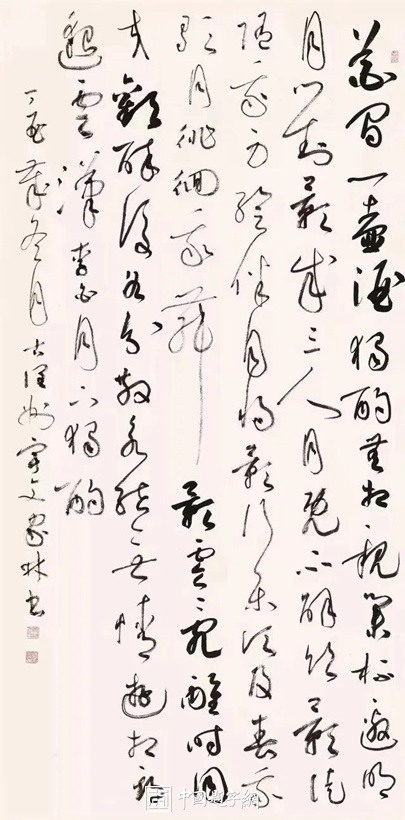 花間一壺酒獨酌無相親舉杯邀明
月對影成三人月既不解飲影徒
隨我身暫伴月將影行樂須及春我
歌月徘徊我舞影零亂醒時同
交歡醉後各分散永結無情遊相期
邈雲漢李白月下獨酌
丁酉冬月古潭州家林書